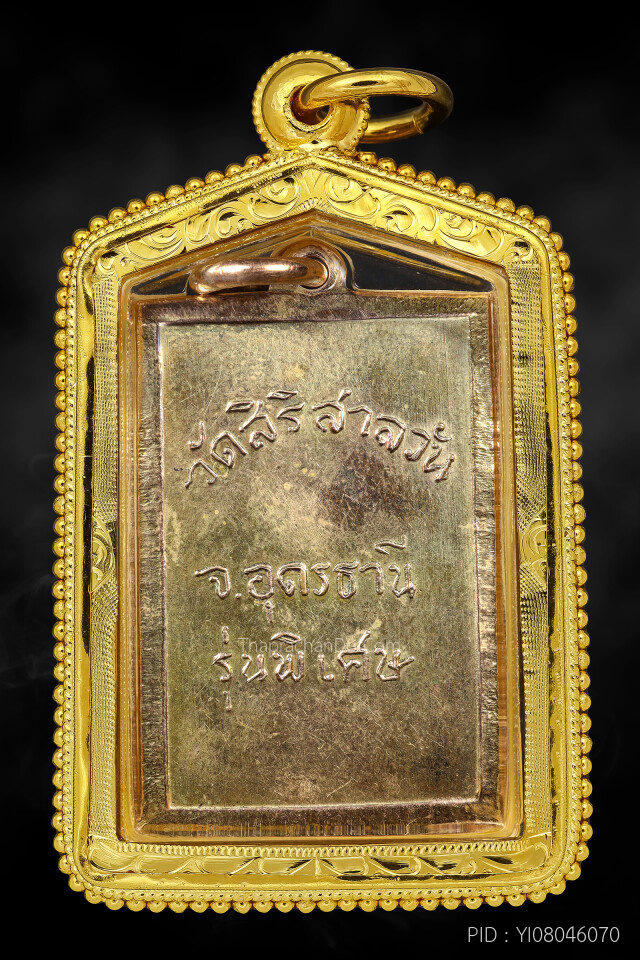 วัดสิริสาลวัน
จ.อุดรธานี
รุ่นพิเศษ
PID : YI08046070